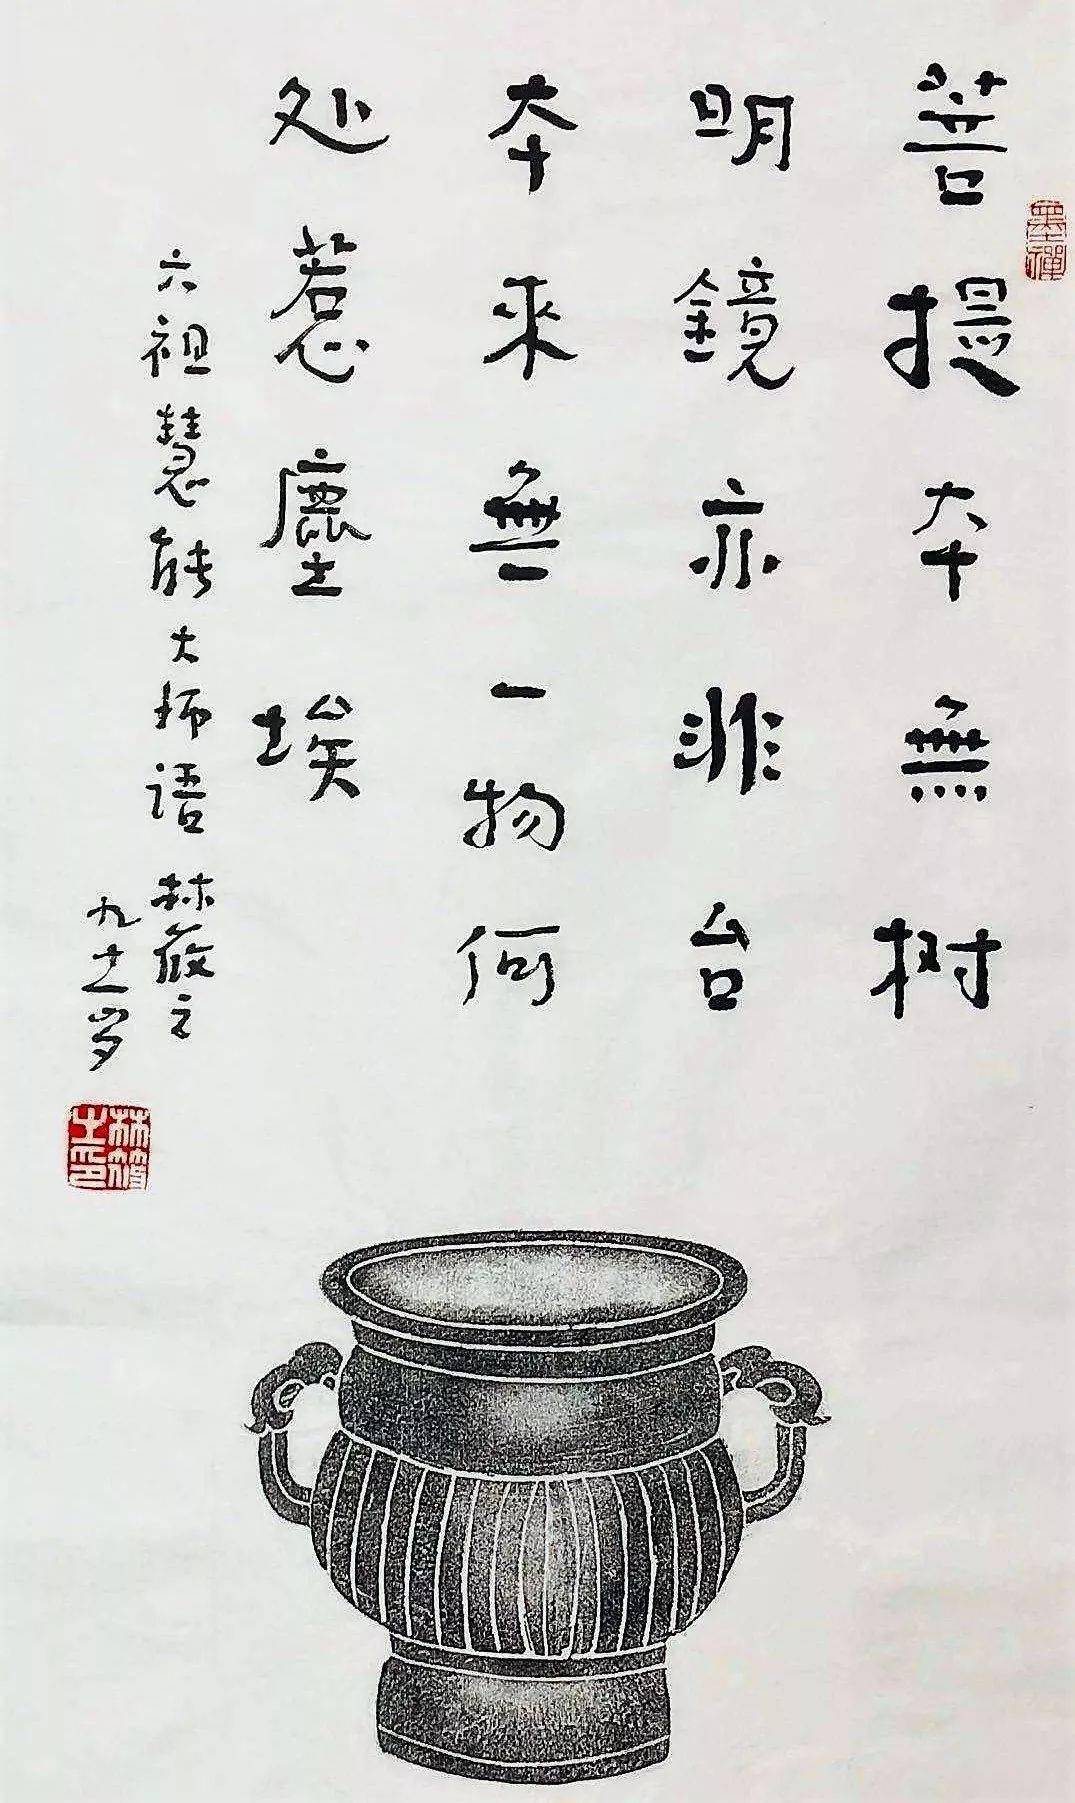 墨禪
菩提本無树
明鏡亦非台
本來無一物何
处惹塵埃
六祖慧能大师语 林筱之
九十一岁
林筱之印